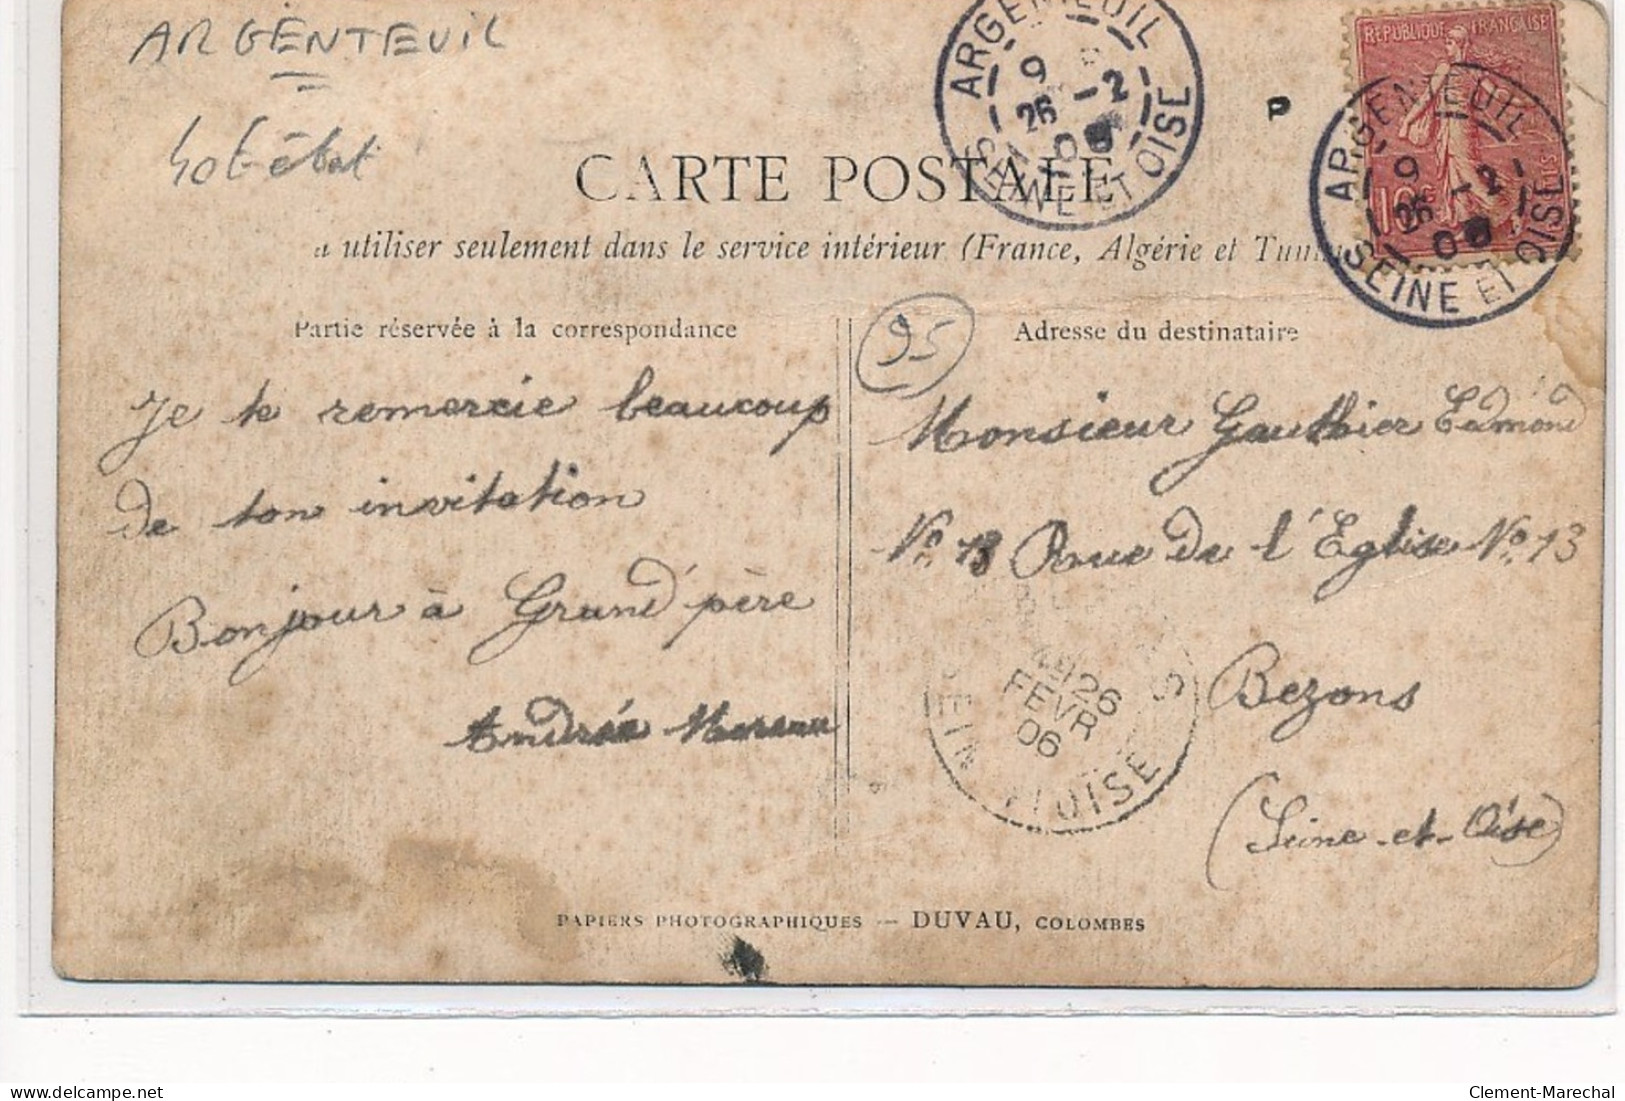 ARGENTEUIL
CARTE POSTALE
à utiliser seulement dans le service intérieur (France, Algérie et
ARGENTEUIL
9
26 -2
06
SEINE ET OISE
P
REPUBLIQUE FRANÇAISE
10c
ARGENTEUIL
9
26 -2
0
SEINE ET OISE
Partie réservée à la correspondance
Je te remercie beaucoup
de ton invitation
Bonjour à Grand'père
Andrée Moreau
95
Adresse du destinataire
Monsieur Gauthier Edmond
No. 13 Rue de l'Eglise No. 13
Bezons
(Seine-et-Oise)
26
FEVR
06
SEINE OISE
PAPIERS PHOTOGRAPHIQUES — DUVAU, COLOMBES
delcampe.net
Clement-Marechal